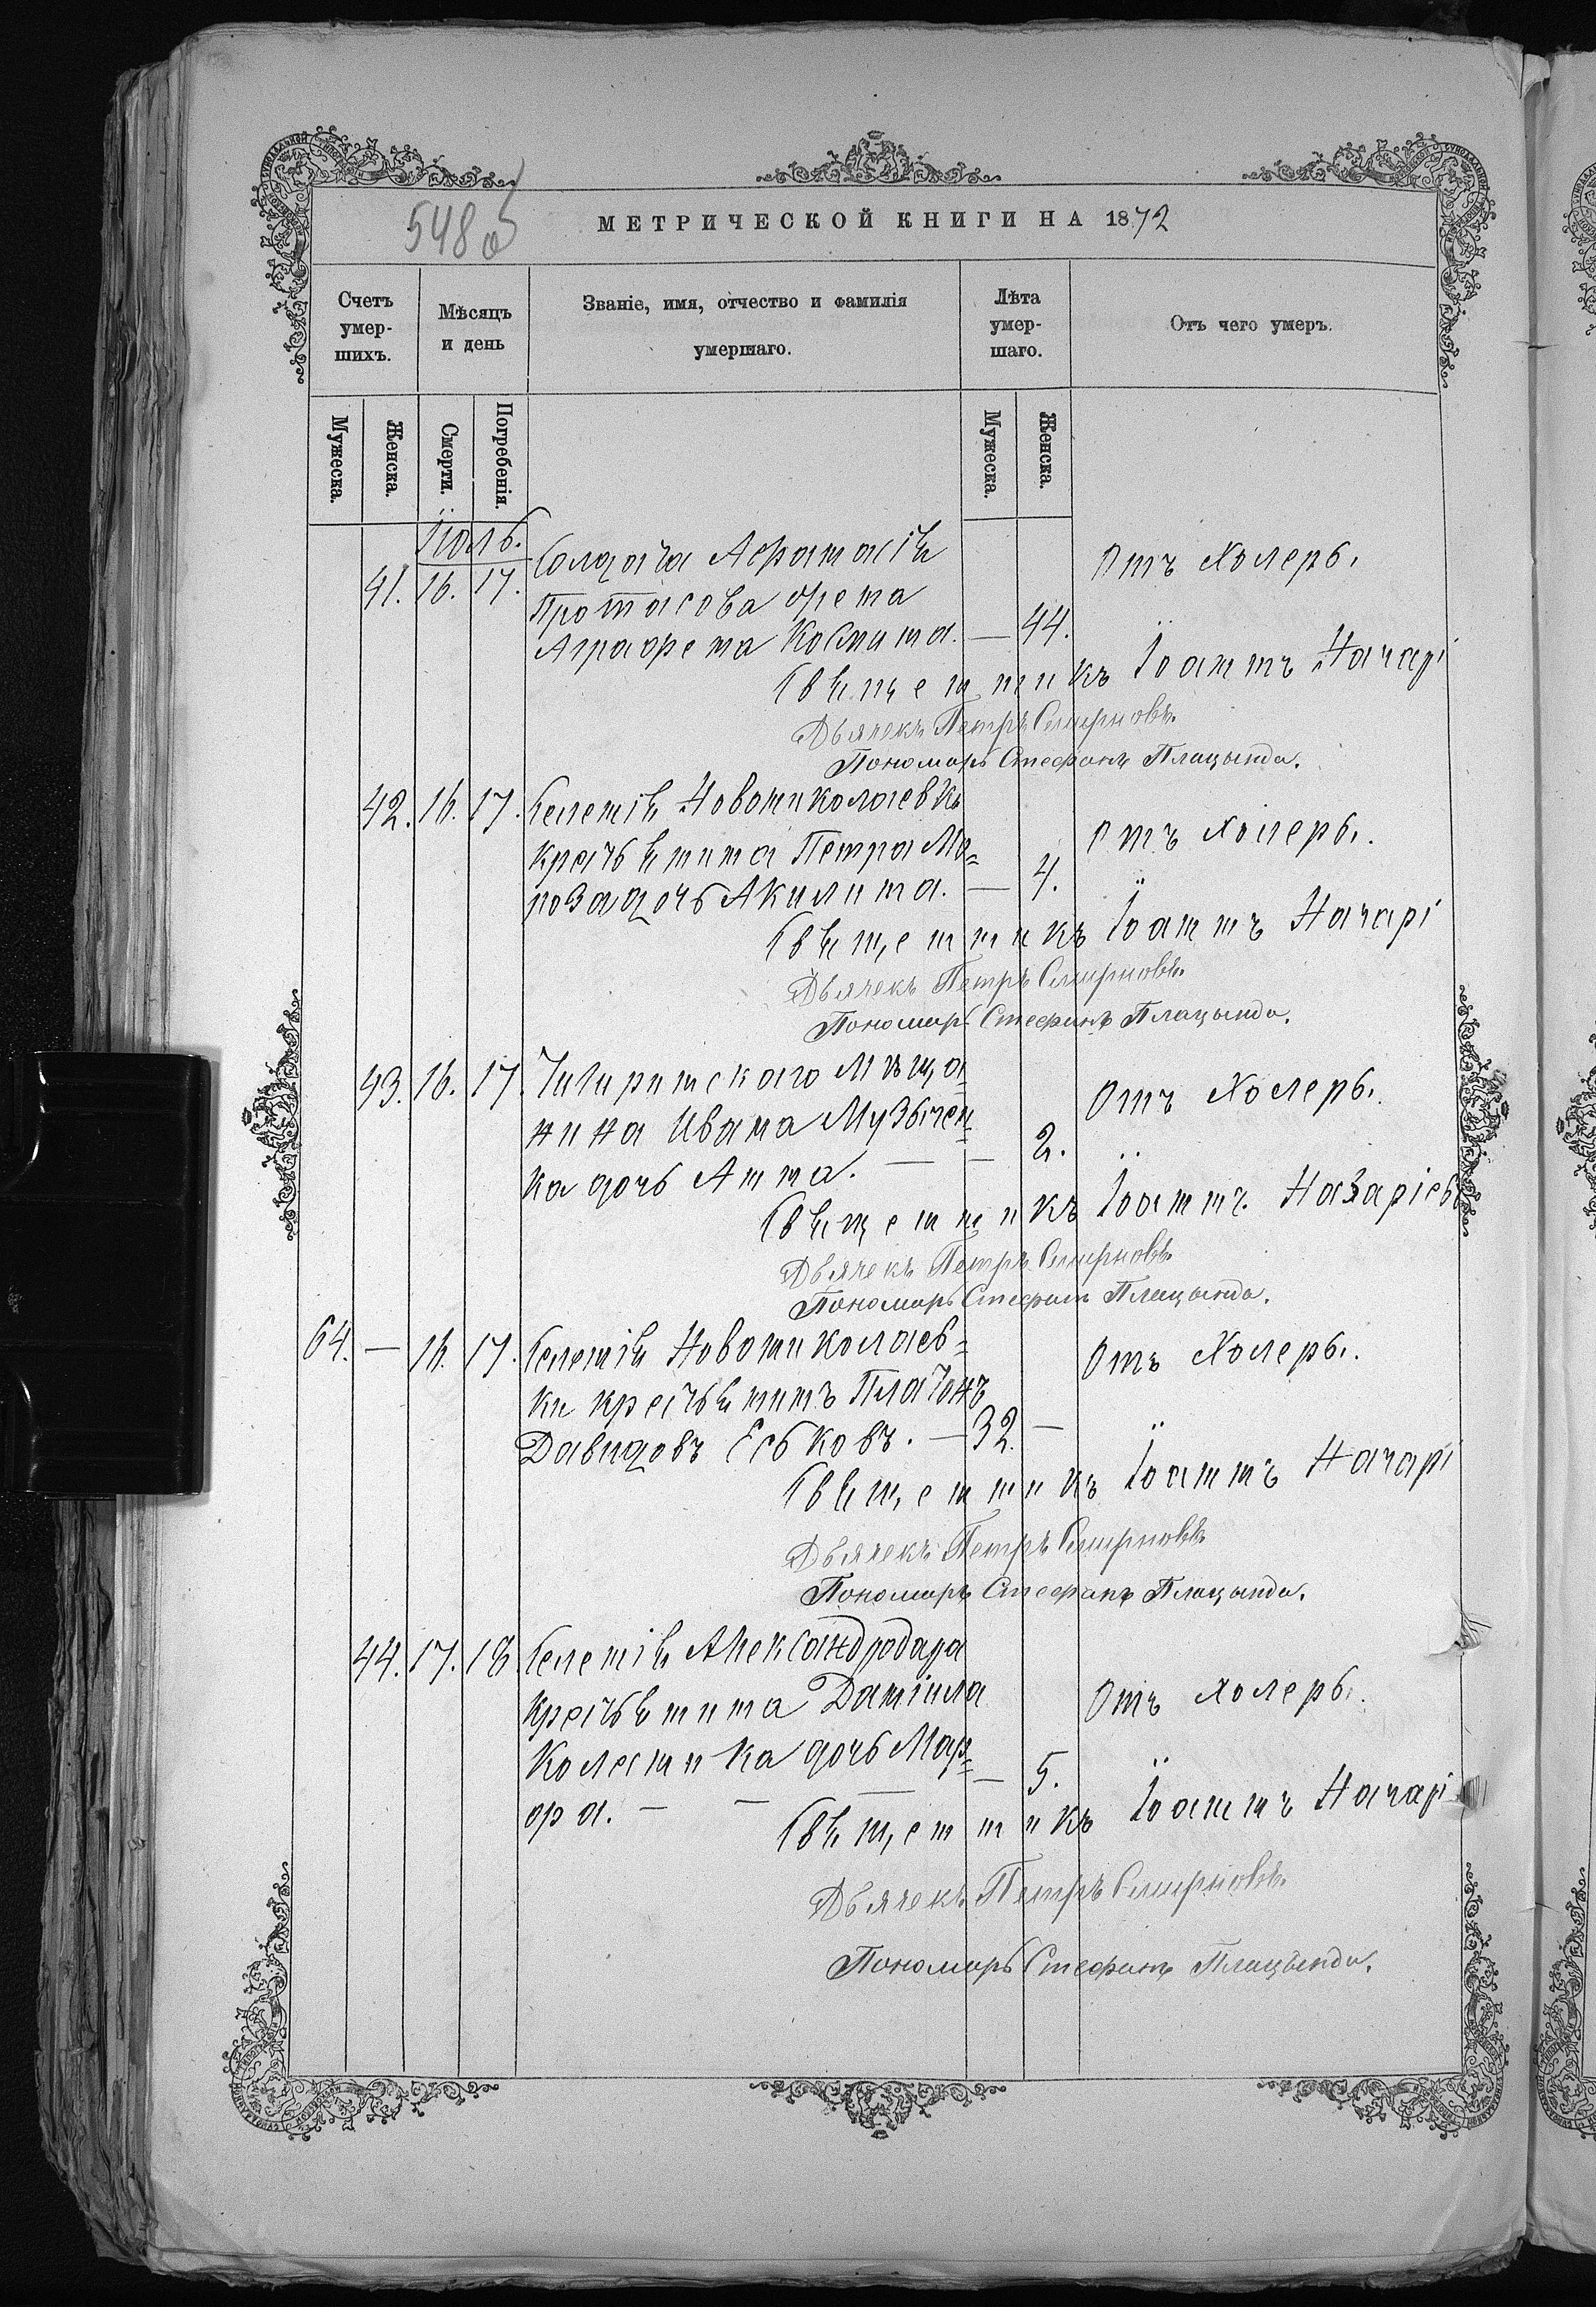 548 об
МЕТРИЧЕСКОЙ КНИГИ НА 1872
Счетъ умер-шихъ.
Мѣсяцъ и день
Званіе, имя, отчество и фамилія умершаго.
Лѣта умер-шаго.
Отъ чего умеръ.
Мужеска.
Женска.
Смерти.
Погребенія.
Мужеска.
Женска.
Іюль.
41. 16. 17. Солдата Афанасія Отъ Холеры.
Протасова жена
Аграфена Космина. — 44.
Священникъ Іоаннъ Назарі
Дьячекъ Петръ Смирновъ.
Пономарь Стефанъ Плацында.
42. 16. 17. Селенія Новониколаевки Отъ Холеры.
крестьянина Петра Мо=
роза дочь Акилина. — 4.
Священникъ Іоаннъ Назарі
Дьячекъ Петръ Смирновъ.
Пономарь Стефанъ Плацында.
43. 16. 17. Чигиринскаго Мѣща= Отъ Холеры.
нина Ивана Музычен=
ка дочь Анна. — — 2.
Священникъ Іоаннъ Назаріевъ
Дьячекъ Петръ Смирновъ.
Пономарь Стефанъ Плацында.
64. — 16. 17. Селенія Новониколаев= Отъ Холеры.
ки крестьянинъ Платонъ
Давидовъ Еськовъ. — 32. —
Священникъ Іоаннъ Назарі
Дьячекъ Петръ Смирновъ
Пономарь Стефанъ Плацында.
44. 17. 18. Селенія Александродара Отъ Холеры.
крестьянина Даніила
Колесника дочь Мар=
фа. — — — 5.
Священникъ Іоаннъ Назарі
Дьячекъ Петръ Смирновъ.
Пономарь Стефанъ Плацында.